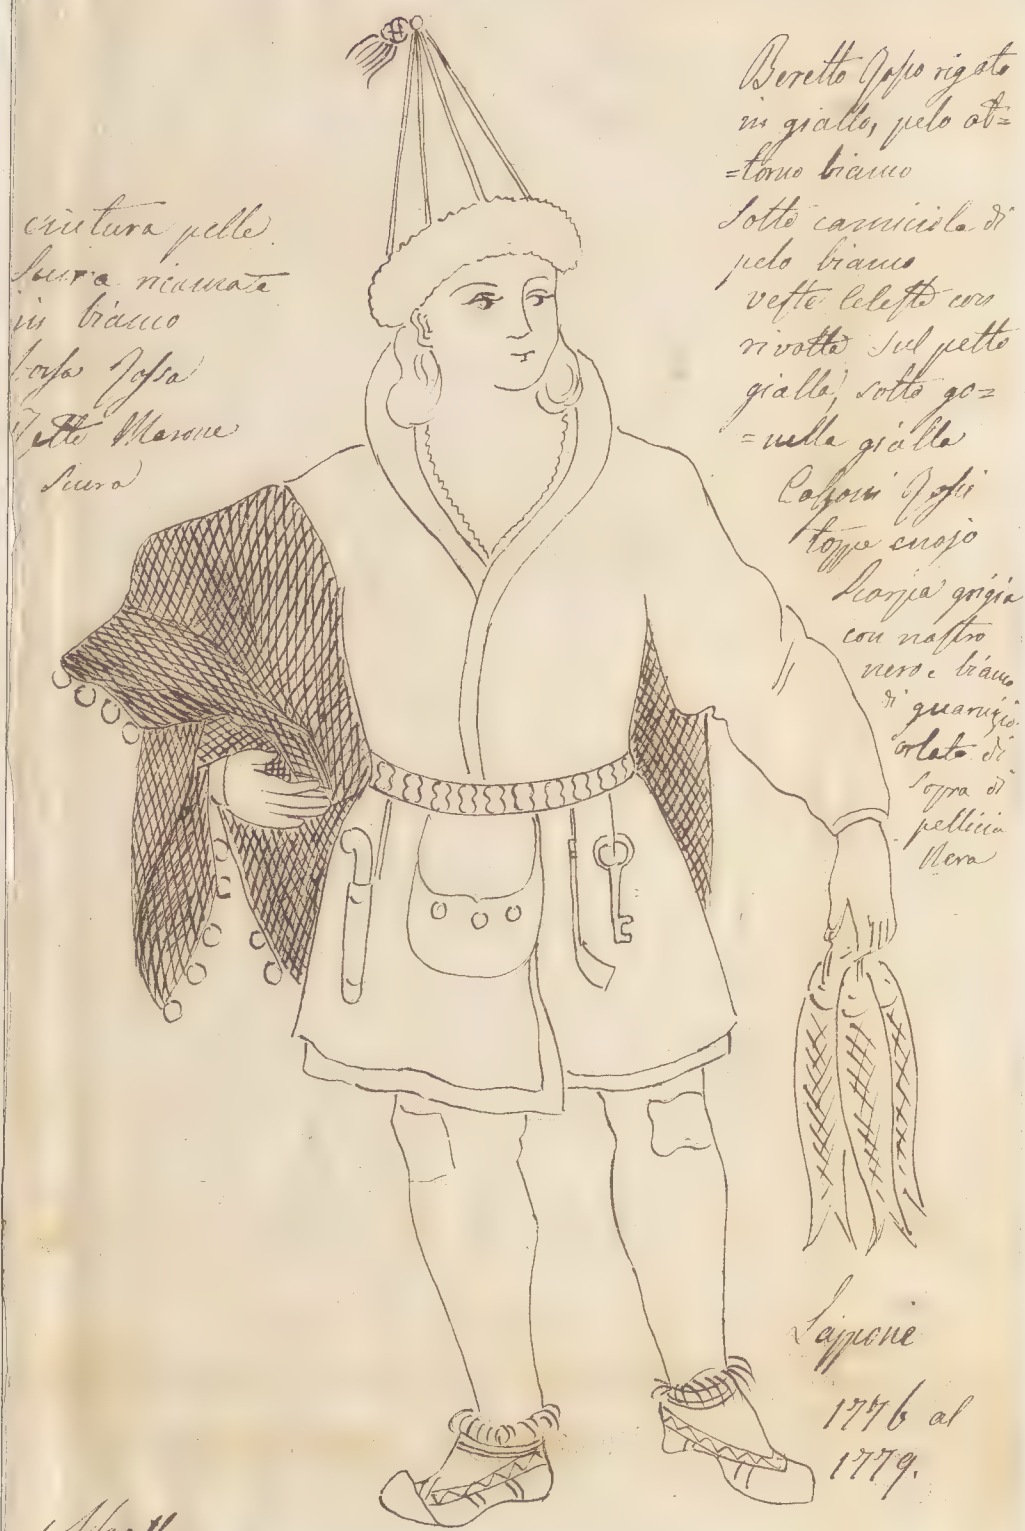 cintura pelle
scura ricamata
in bianco
borsa Rossa
Marone
Scura
Beretto Rosso rigato
in giallo, pelo at=
=torno bianco
Sotto camiciola di
pelo bianco
veste celeste con
rivolta sul petto
gialla, sotto go=
=nella gialla
Calzoni Rossi
toppe cuojo
Scarpa grigia
con nastro
nero e bianco
di guarnizio.
orlata di
sopra di
pelliccia
Nera
Lappone
1776 al
1779.